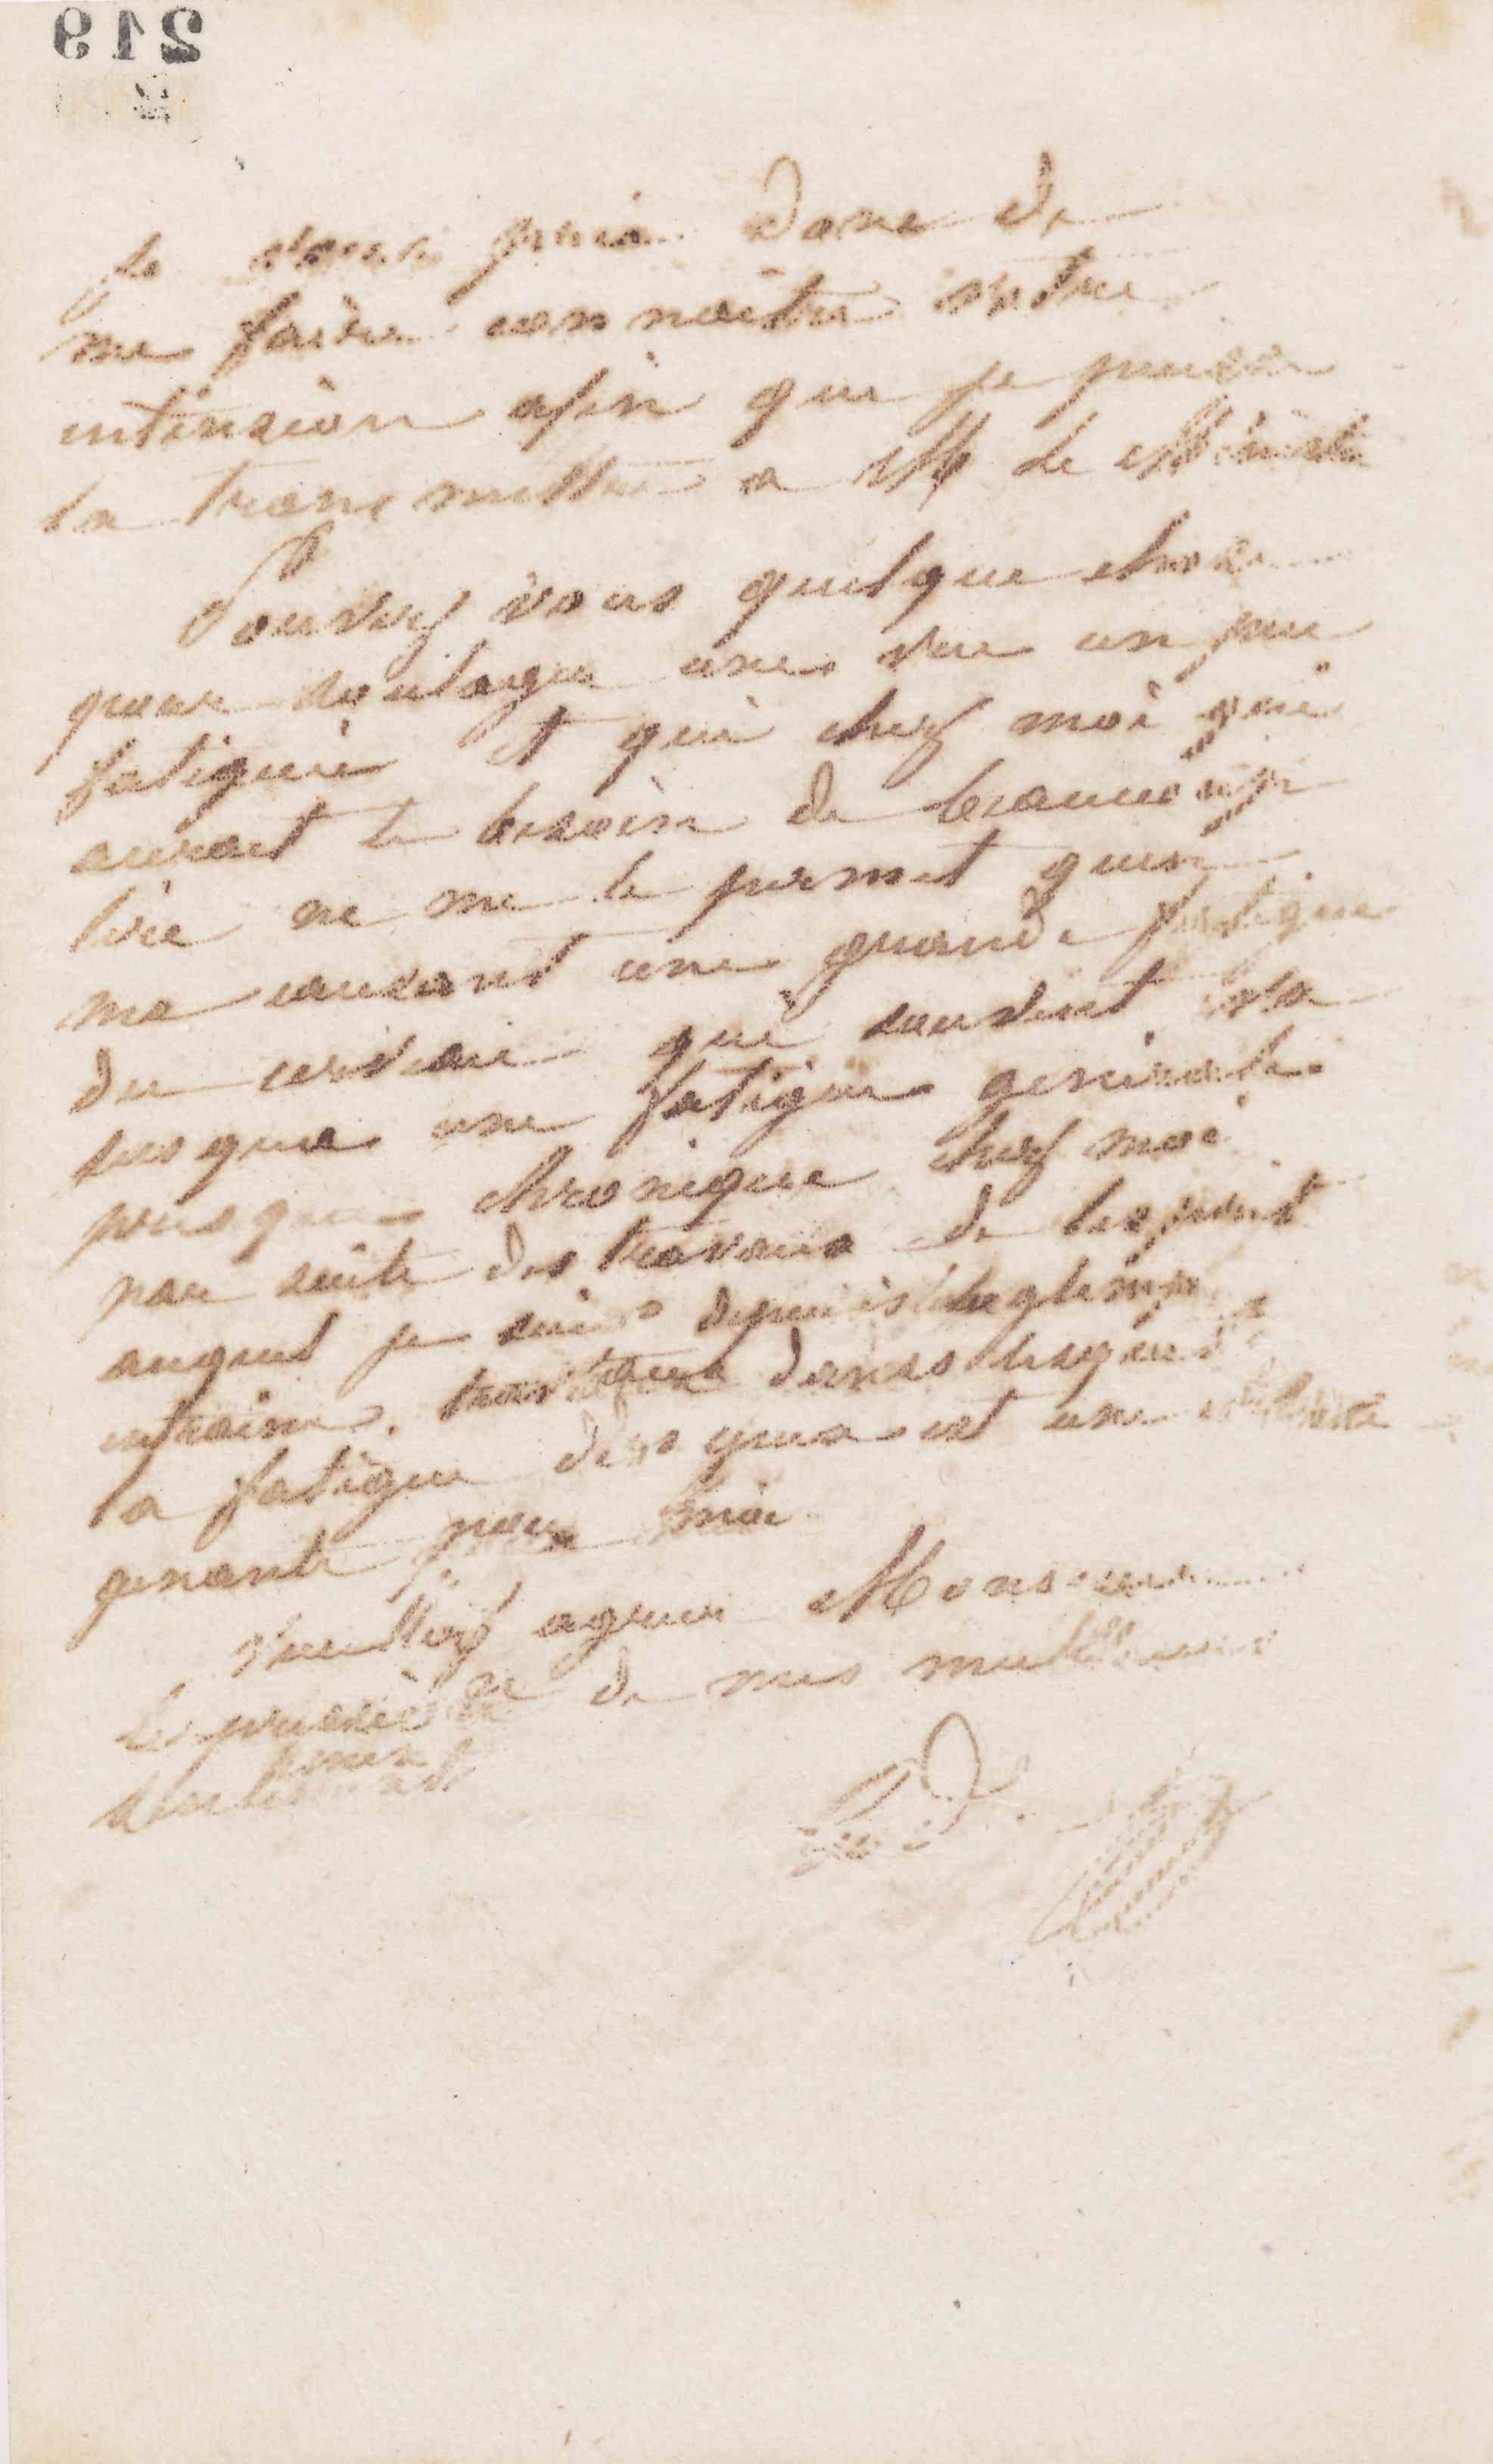 219
Je vous prie donc de
me faire connaitre votre
intension afin que je puisse
la transmettre a M le Ministre
Pouvez vous quelque chose
pour soulager une vue un peu
fatiguée et qui chez moi qui
aurait le besoin de beaucoup
lire ne me le permet quen
me causant une grande fatigue
du cerveau qui souvent va
jusqua une fatigue generale
presque chronique chez moi
par suite des travaux de lesprit
auquel je suis depuis longtemps
entrainé. dans lesquels
la fatigue des yeux est une
genante pour moi
Veuillez agreer Monsieur
de mes meilleurs
sentiments